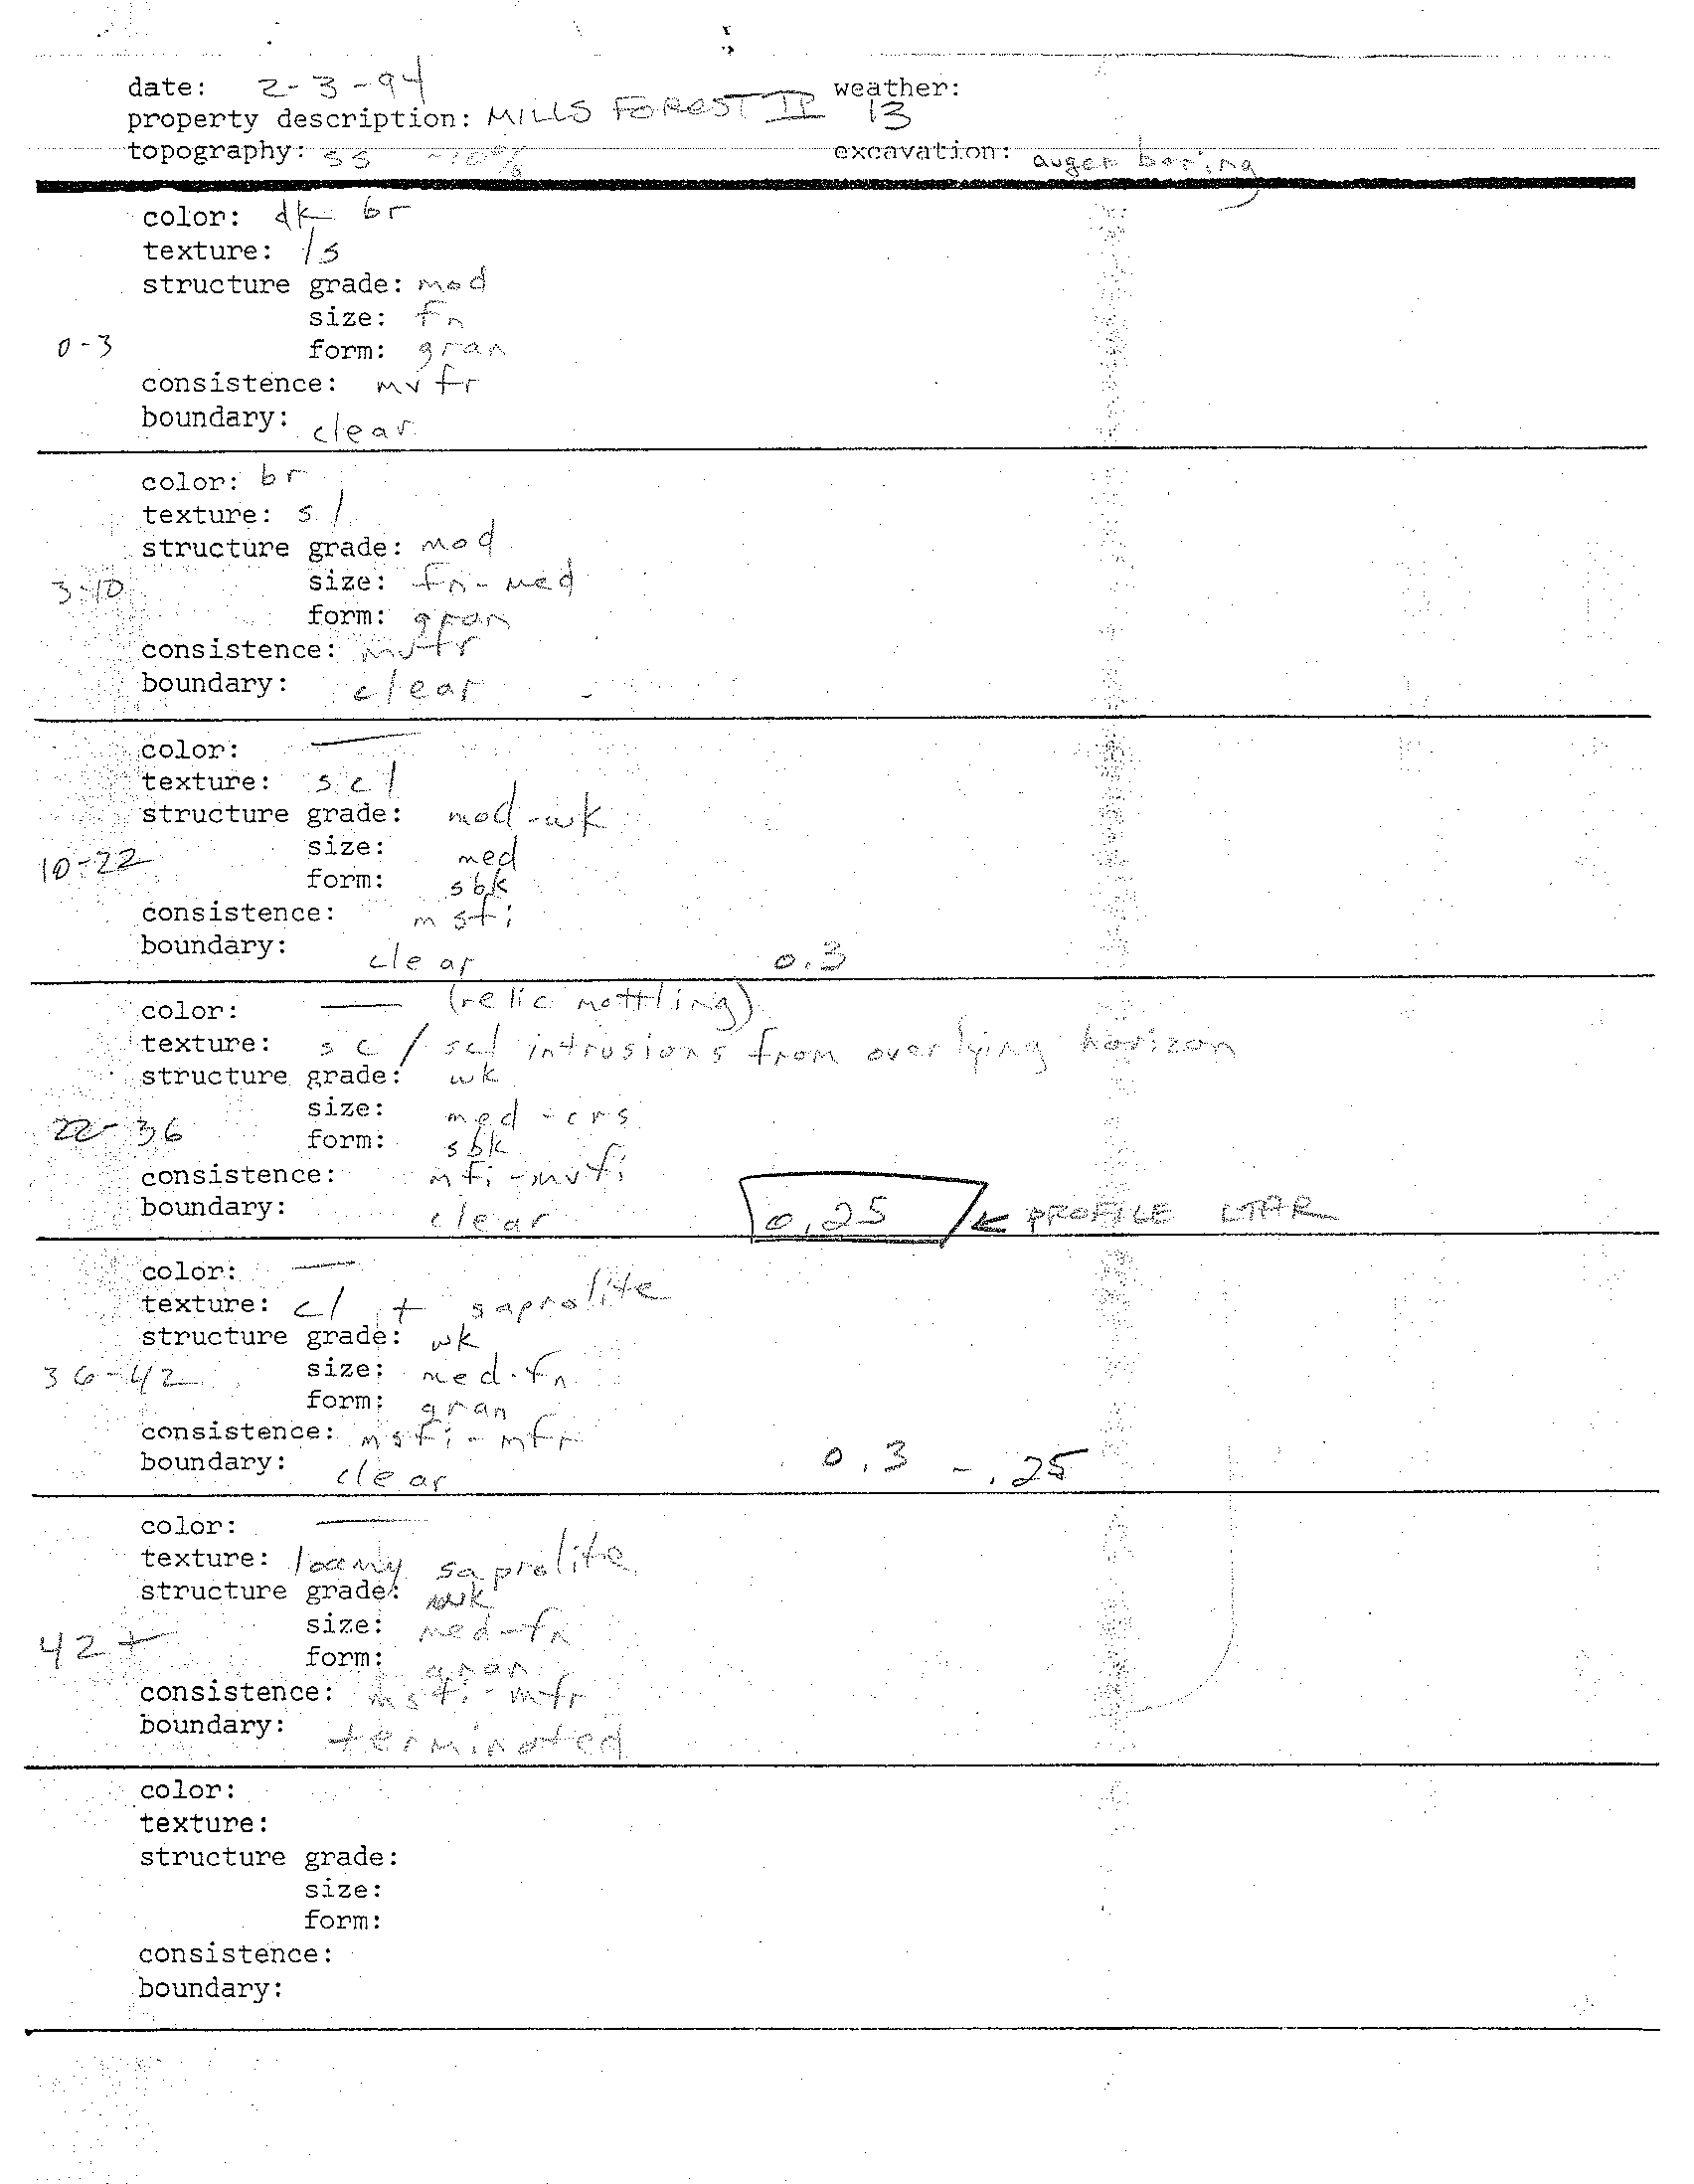 date: 2-3-94 weather:
property description: MILLS FOREST II 13
topography: SS ~10% excavation: auger boring
color: dk br
texture: ls
structure grade: mod
size: fn
0-3 form: gran
consistence: mvfr
boundary: clear
color: br
texture: sl
structure grade: mod
3-10 size: fn-med
form: gran
consistence: mvfr
boundary: clear
color: —
texture: scl
structure grade: mod-wk
size: med
10-22 form: sbk
consistence: msfi
boundary: clear 0.3
color: — (relic mottling)
texture: sc / scl intrusions from overlying horizon
structure grade: wk
size: med-crs
22-36 form: sbk
consistence: mfi-mvfi
boundary: clear 0.25 ← PROFILE LTAR
color: —
texture: cl + saprolite
structure grade: wk
36-42 size: med-fn
form: gran
consistence: msfi-mfr
boundary: clear 0.3 - .25
color: —
texture: loamy saprolite
structure grade: wk
42+ size: med-fn
form: gran
consistence: msfi-mfr
boundary: terminated
color:
texture:
structure grade:
size:
form:
consistence:
boundary: